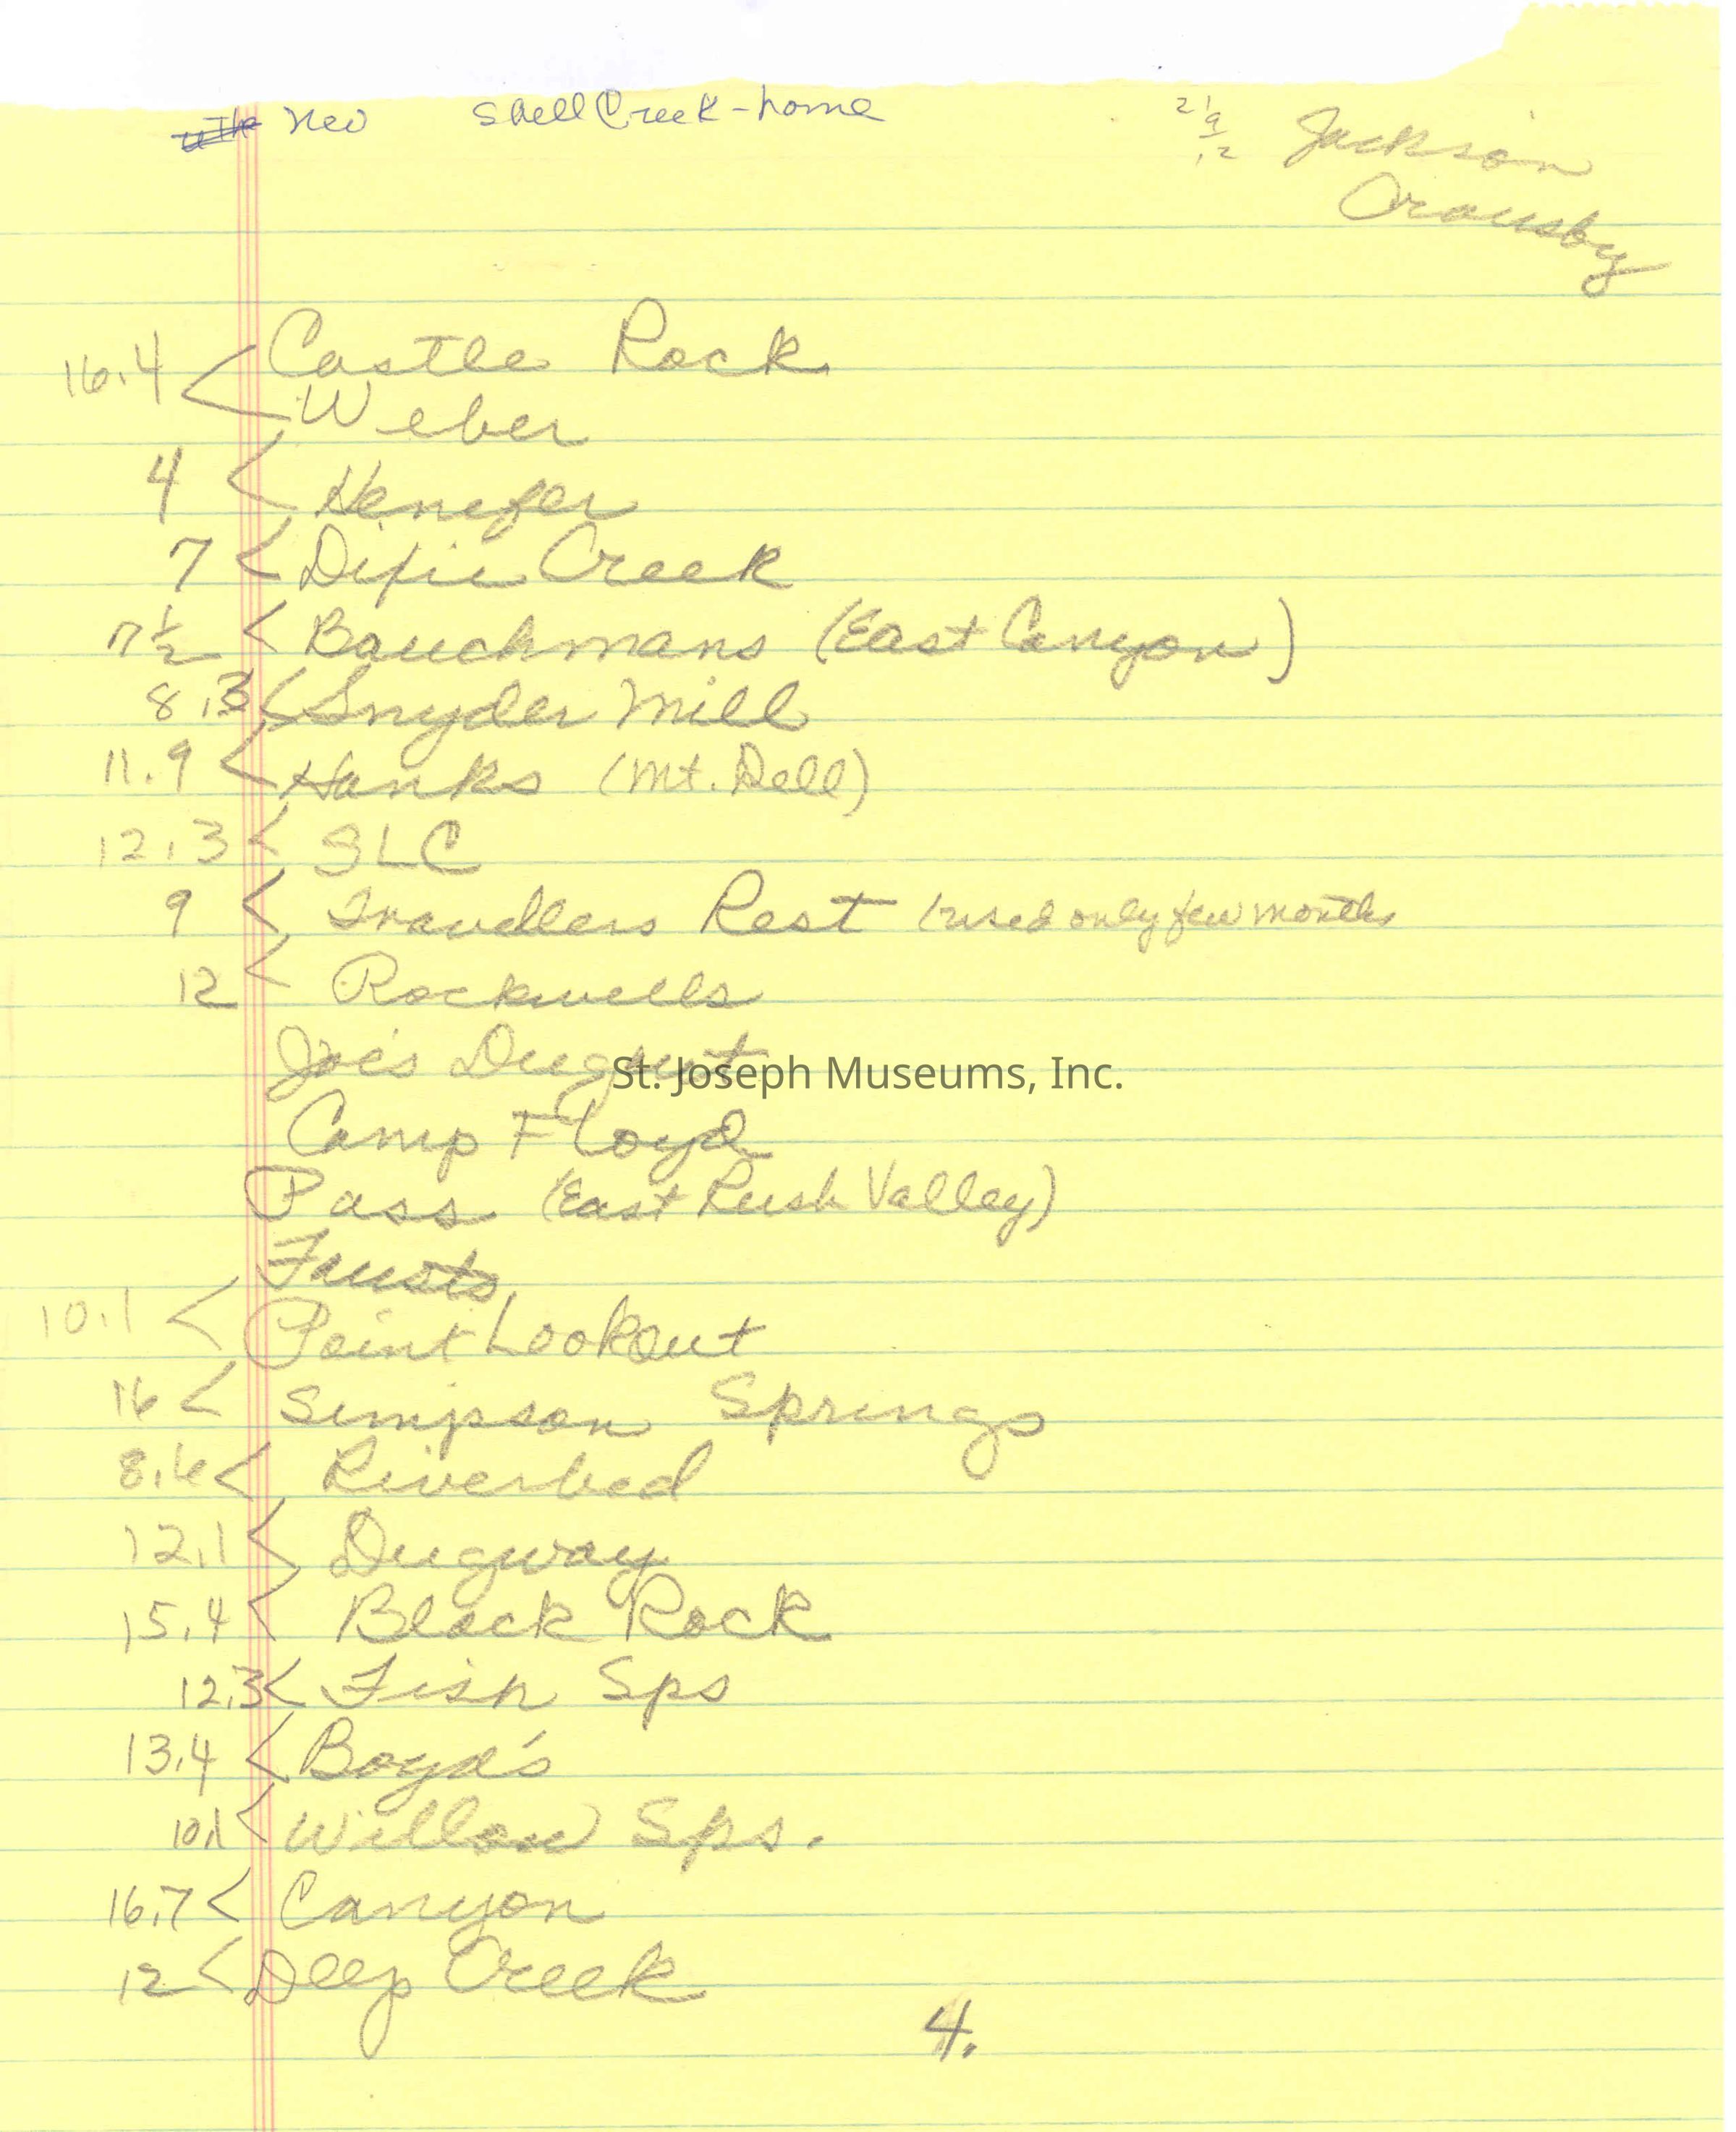 Neo Shell Creek - home
2 1
9
12
Jackson
Ormsby
16.4 < Castle Rock
Weber
4 < Henefer
7 < Dixie Creek
7 1/2 < Bauchmans (East Canyon)
8.3 < Snyder Mill
11.9 < Hanks (Mt. Dell)
12.3 < SLC
9 < Travellers Rest (used only few months
12 < Rockwells
Joe's Dugout
St. Joseph Museums, Inc.
Camp Floyd
Pass (East Rush Valley)
Fausts
10.1 < Point Lookout
16 < Simpson Springs
8.6 < Riverbed
12.1 < Dugway
15.4 < Black Rock
12.3 < Fish Sps
13.4 < Boyd's
10.1 < Willow Sps.
16.7 < Canyon
12 < Deep Creek
4.